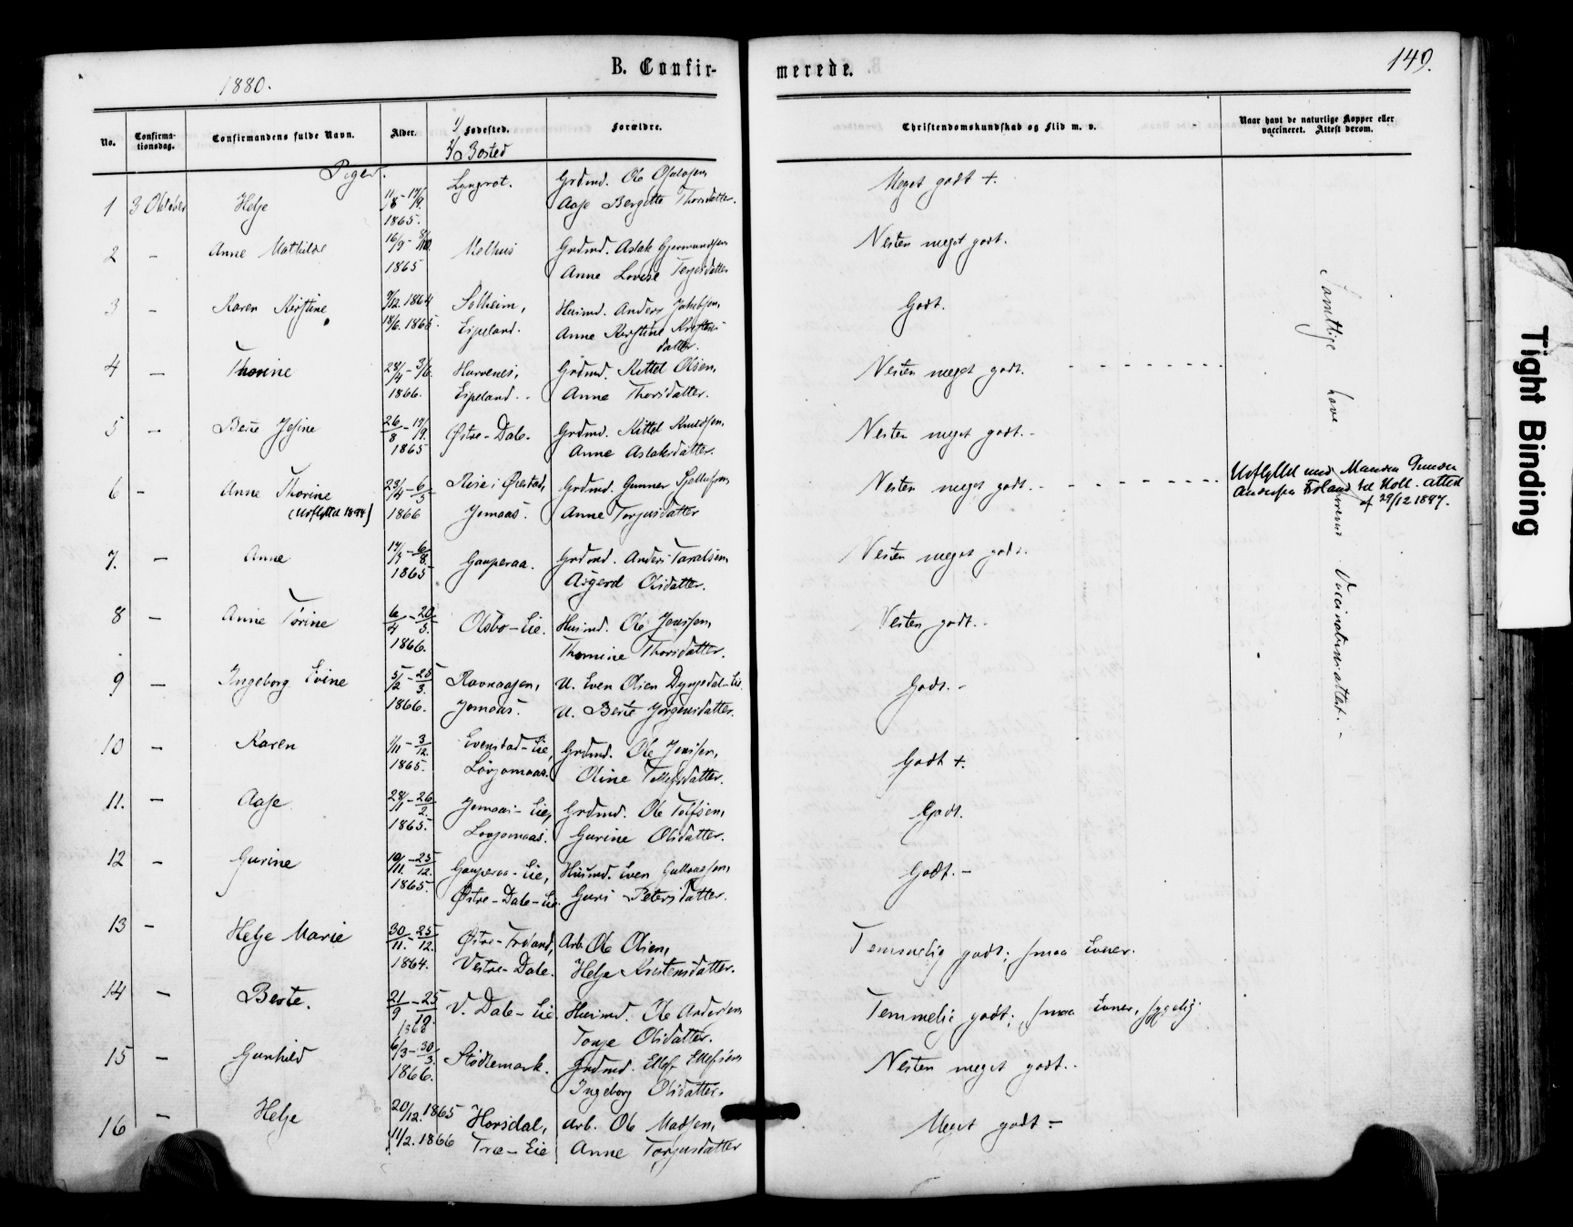 1880.
B. Confir-
merede.
149.
No.
Confirma-
tionsdag.
Confirmandens fulde Navn.
Alder.
1/ Fødested.
2/ Bosted
Forældre.
Christendomskundskab og Flid m. v.
Naar havt de naturlige Kopper eller
vaccineret. Attest derom.
Piger.
1 3 Oktober Helje 11/8 - 17/9 1865. Lyngrot. Grdmd. Ole
Aase Bergitte Thorsdatter. Meget godt +.
2 - Anne Mathilde 16/9 - 1865 Melhus Grdmd. Aslak Gjermundsen
Anne Lovise Terjesdatter Nesten meget godt.
3 - Karen Kirstine 9/12. 1864 Solheim, Husmd. Anders Jakobsen,
18/6. 1865. Espeland. Anne Kirstine
datter. Godt.
4 - Thorine 28/4 - 3/6 Harvenes, Grdmd. Kittel Olsen,
1866. Espeland. Anne Thorsdatter. Nesten meget godt.
5 - Berte Josine 26/8 - 17/9. Østre-Dale. Grdmd. Kittel Knudsen,
1865 Anne Aslaksdatter. Nesten meget godt.
6 - Anne Thorine 23/4 - 6/5 Rise i Øiestad, Grdmd. Gunner
(Udflyttet 1897) 1866 Jomaas. Anne Torjusdatter Nesten meget godt.
Udflyttet med Manden Gunder
Andersen Froland til Holt. Attest
af 29/12 1897.
7. - Anne 17/7 - 6/8. Gauperaa. Grdmd. Anders Taraldsen
1865 Asgerd Olsdatter. Nesten meget godt.
8 - Anne Tørine 6/4 - 20/5. Olsbo-Eie. Husmd. Ole Jensen,
1866. Thomine Thorsdatter. Nesten godt.
9 - Ingeborg Evine 5/2 - 25/3. Ravnaasen, U. Even Olsen Dyngedal-Eie.
1866. Jomaas. U. Berte Jørgensdatter. Godt.
10 - Karen 1/11 - 3/12. Evenstad-Eie, Grdmd. Ole Jensen,
1865. Løvjomaas. Oline Tellefsdatter. Godt +.
11. - Aase 28/1 - 26/2. Jomaas-Eie, Grdmd. Ole Tolfsen,
1865. Løvjomaas. Gurine Olsdatter. Godt.
12 - Gurine 19/11. - 25/12. Gauperaa-Eie, Husmd. Even Gullovsen,
1865. Østre-Dale-Eie. Guri Petersdatter. Godt.
13 - Helje Marie 30/11. - 25/12. Østre-Froland, Arb. Ole Olsen,
1864. Vestre-Dale. Helje Kristensdatter. Temmelig godt; smaa Evner.
14 - Berte. 21/9 - 25/10. V. Dale-Eie Husmd. Ole Andersen
Tonje Olsdatter. Temmelig godt; smaa Evner, sygelig.
15 - Gunhild 6/3 - 30/3. Stødlemark. Grdmd. Ellef Ellefsen
1866. Ingeborg Olsdatter. Nesten meget godt.
16 - Helje 20/12. 1865 Horsdal, Arb. Ole Madsen,
11/2. 1866 Træ-Eie Anne Torjusdatter Meget godt -
Samtlige have Vaccinationsattest.
Tight Binding